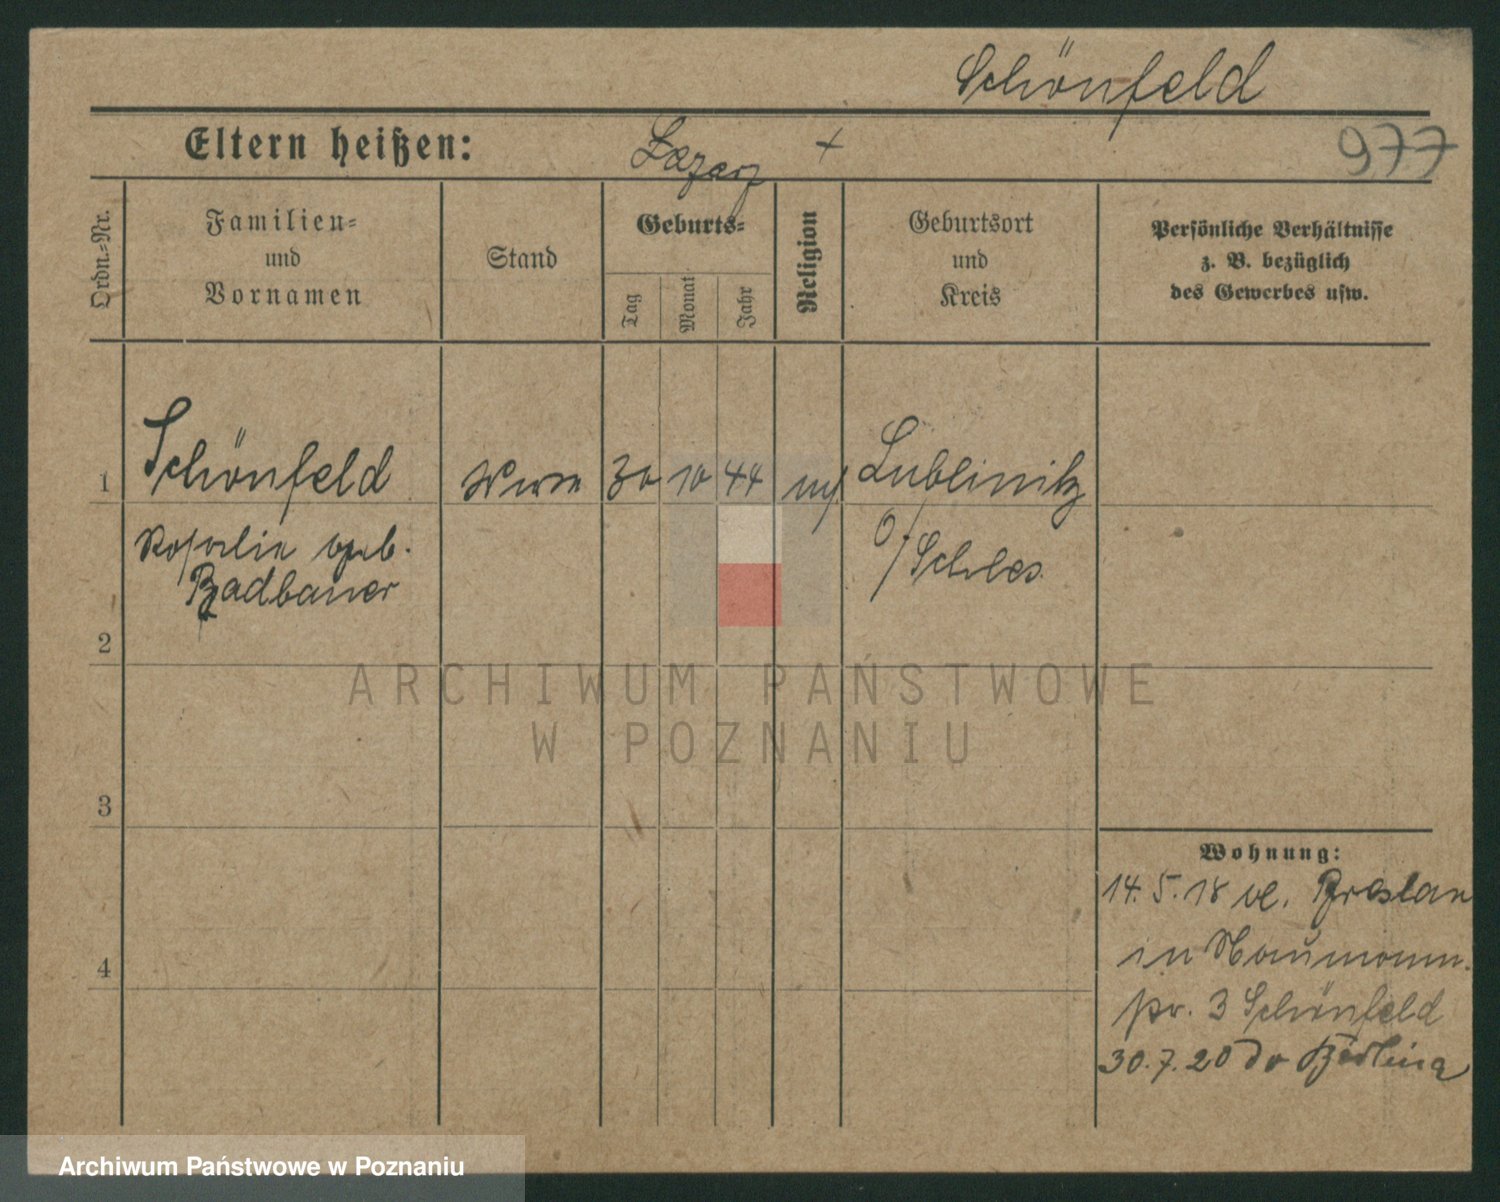 Schönfeld
Eltern heißen:
Lazarz +
977
Ordn.-Nr.
Familien-
und
Vornamen
Stand
Geburts-
Tag
Monat
Jahr
Religion
Geburtsort
und
Kreis
Persönliche Verhältnisse
z. B. bezüglich
des Gewerbes usw.
1
Schönfeld
30 10 44
Lublinitz
Rosalie geb.
Badbauer
O/Schles.
2
3
4
Wohnung:
14. 5. 18 Breslau
in Naumann.
str. 3 Schönfeld
30. 7. 20 do Berlina
ARCHIWUM PAŃSTWOWE
W POZNANIU
Archiwum Państwowe w Poznaniu